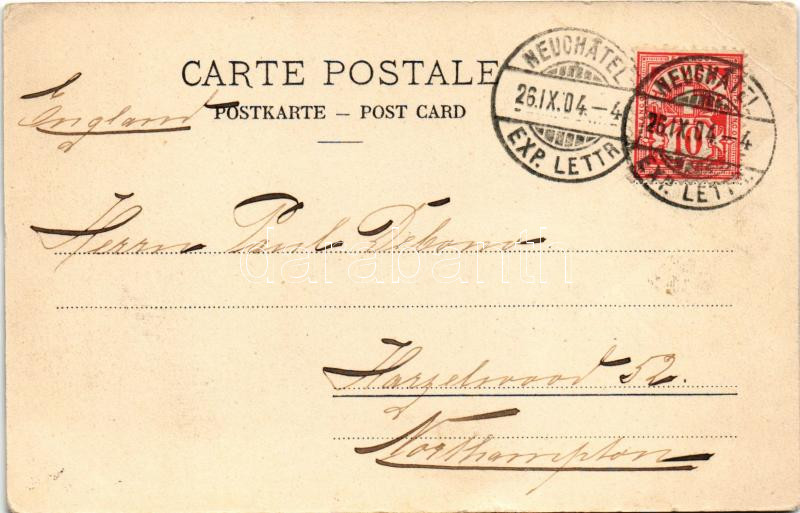 CARTE POSTALE
POSTKARTE – POST CARD
England
NEUCHÂTEL
26.IX.04.–4
EXP. LETTR.
NEUCHÂTEL
26.IX.04.–4
EXP. LETTR.
10
Herrn Paul Debono
darabanth
Harzelwood 52.
Northampton